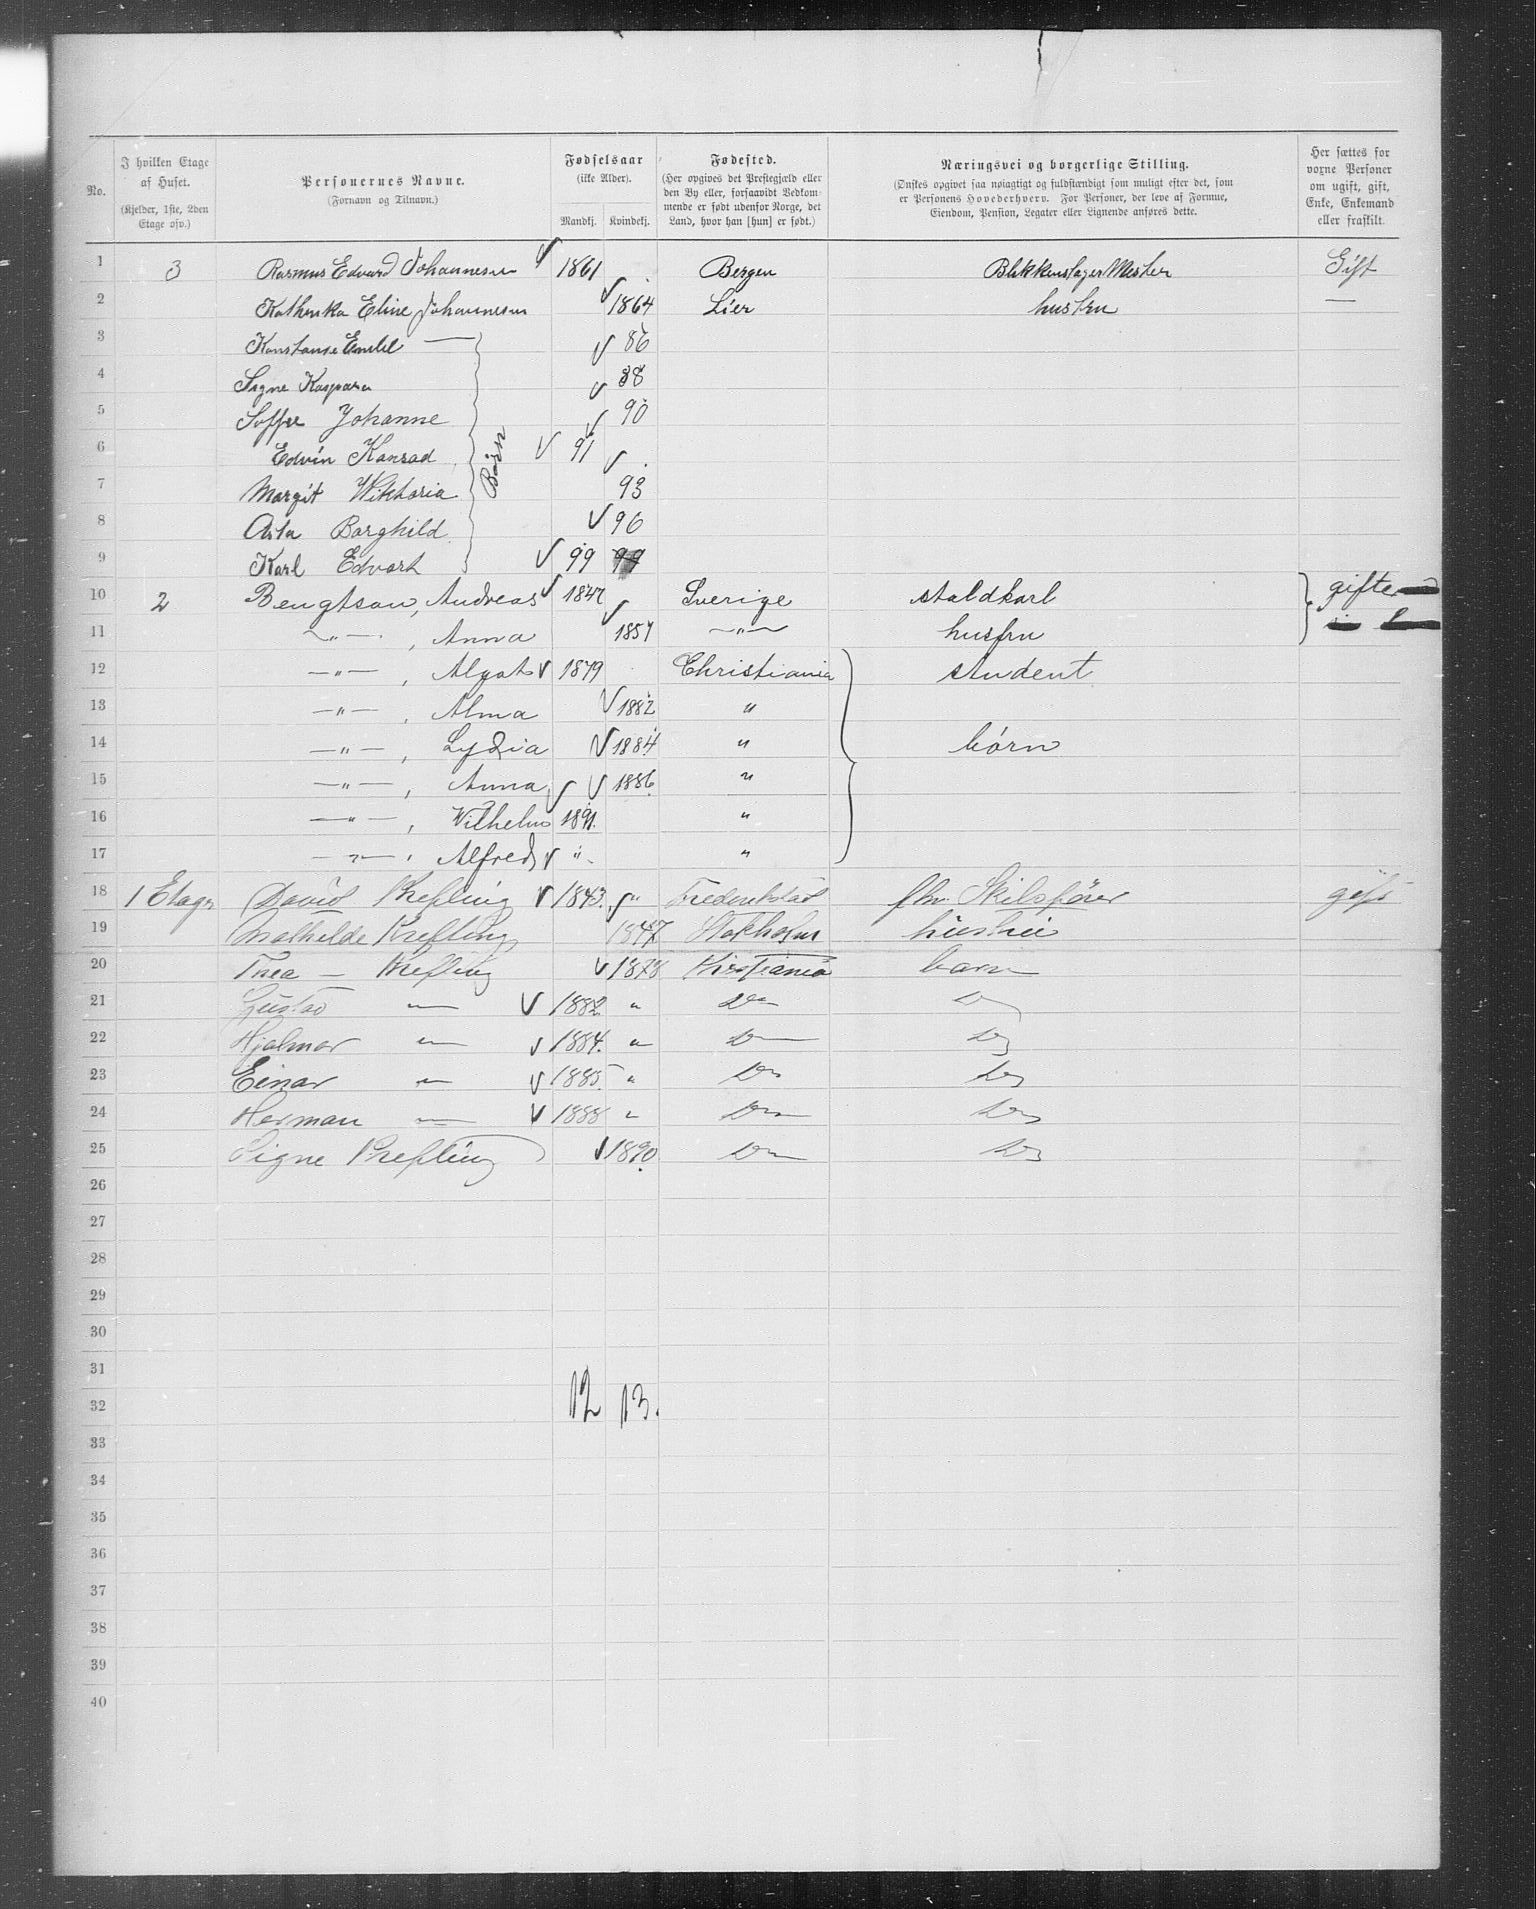 No. | I hvilken Etage af Huset. (Kjelder, 1ste, 2den Etage osv.) | Personernes Navne. (Fornavn og Tilnavn.) | Fødselsaar (ikke Alder). Mandkj. | Kvindekj. | Fødested. (Her opgives det Prestegjæld eller den By eller, forsaavidt Vedkommende er født udenfor Norge, det Land, hvor han [hun] er født.) | Næringsvei og borgerlige Stilling. (Ønskes opgivet saa nøiagtigt og fuldstændigt som muligt efter det, som er Personens Hovederhverv. For Personer, der leve af Formue, Eiendom, Pension, Legater eller Lignende anføres dette.) | Her sættes for voxne Personer om ugift, gift, Enke, Enkemand eller fraskilt.
1 3 Rasmus Edvard Johannesen 1861 Bergen BlikkenslagerMester Gift
2 Kathinka Eline Johannesen 1864 Lier hustru —
3 Konstanse Emilel — 86
4 Signe Kaspara 88
5 Soffie Johanne 90
6 Edvin Konrad 91 Børn
7 Margit Wiktoria 93
8 Asta Borghild 96
9 Karl Edvart 99 99
10 2 Bengtson, Andreas 1847 Sverige staldkarl gifte
11 —"—, Anna 1857 —"— husfru
12 —"—, Algot 1879 Christiania student
13 —"—, Alma 1882 "
14 —"—, Lydia 1884 " børn
15 —"—, Anna 1886 "
16 —"—, Wilhelm 1891. "
17 —"—, Alfred " "
18 1 Etage David Krefting 1843. " Frederikstad fhv. Skibsfører gift
19 Mathilde Krefting 1847 Stokholm hustru
20 Thea — Krefting 1878 Kristiania barn
21 Gustav — 1882 " Do Do
22 Hjalmar — 1884. " Do Do
23 Einar — 1885 " Do Do
24 Herman — 1888 " Do Do
25 Signe Krefting 1890 Do Do
26
27
28
29
30
31
32 12 13.
33
34
35
36
37
38
39
40